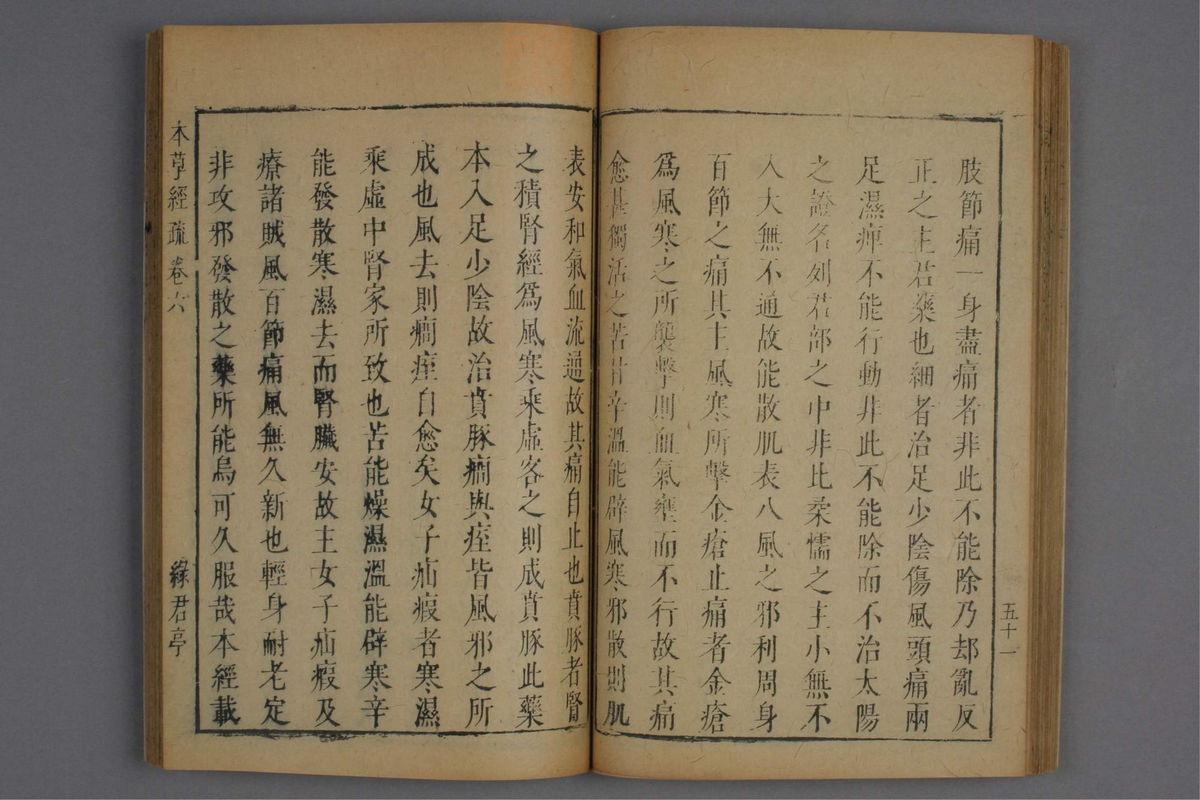 肢節痛一身盡痛者非此不能除乃却亂反
正之主君藥也細者治足少陰傷風頭痛兩
足濕痺不能行動非此不能除而不治太陽
之證名列君部之中非比柔懦之主小無不
入大無不通故能散肌表八風之邪利周身
百節之痛其主風寒所擊金瘡止痛者金瘡
為風寒之所襲擊則血氣壅而不行故其痛
愈甚獨活之苦甘辛溫能辟風寒邪散則肌
五十一
表安和氣血流通故其痛自止也賁豚者腎
之積腎經為風寒乘虛客之則成賁豚此藥
本入足少陰故治賁豚癎與痓皆風邪之所
成也風去則癎痓自愈矣女子疝瘕者寒濕
乘虛中腎家所致也苦能燥濕溫能辟寒辛
能發散寒濕去而腎臟安故主女子疝瘕及
療諸賊風百節痛風無久新也輕身耐老定
非攻邪發散之藥所能烏可久服哉本經載
本草經疏 卷六 綠君亭